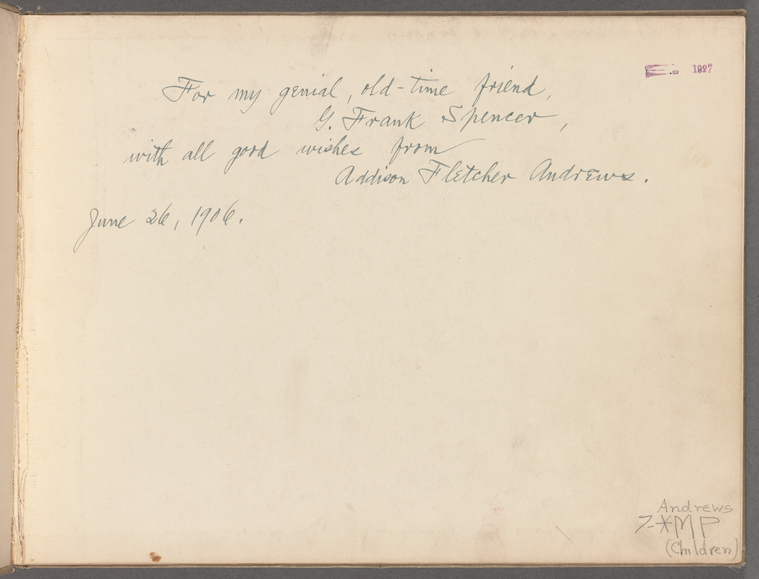 1927
For my genial, old-time friend,
G. Frank Spencer,
with all good wishes from
Addison Fletcher Andrews.
June 26, 1906.
Andrews
7-*MP
(Children)